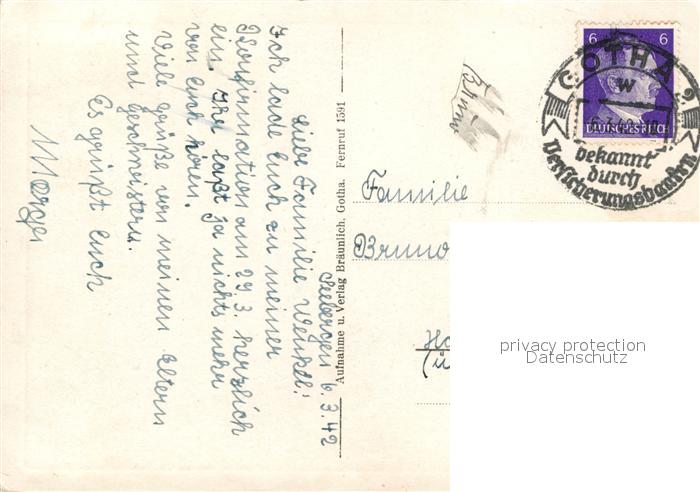 Seebergen 6.3.42
Liebe Familie Wenkel!
Ich lade Euch zu meiner
Konfirmation am 29.3. herzlich
ein. Ihr laßt ja nichts mehr
von Euch hören.
Viele Grüße von meinen Eltern
und Geschwistern.
Es grüßt Euch
Aufnahme u. Verlag Bräunlich. Gotha. Fernruf 1591
6 6
DEUTSCHES REICH
GOTHA 2
W
bekannt
durch
Versicherungsbanken
Familie
Bruno
privacy protection
Datenschutz